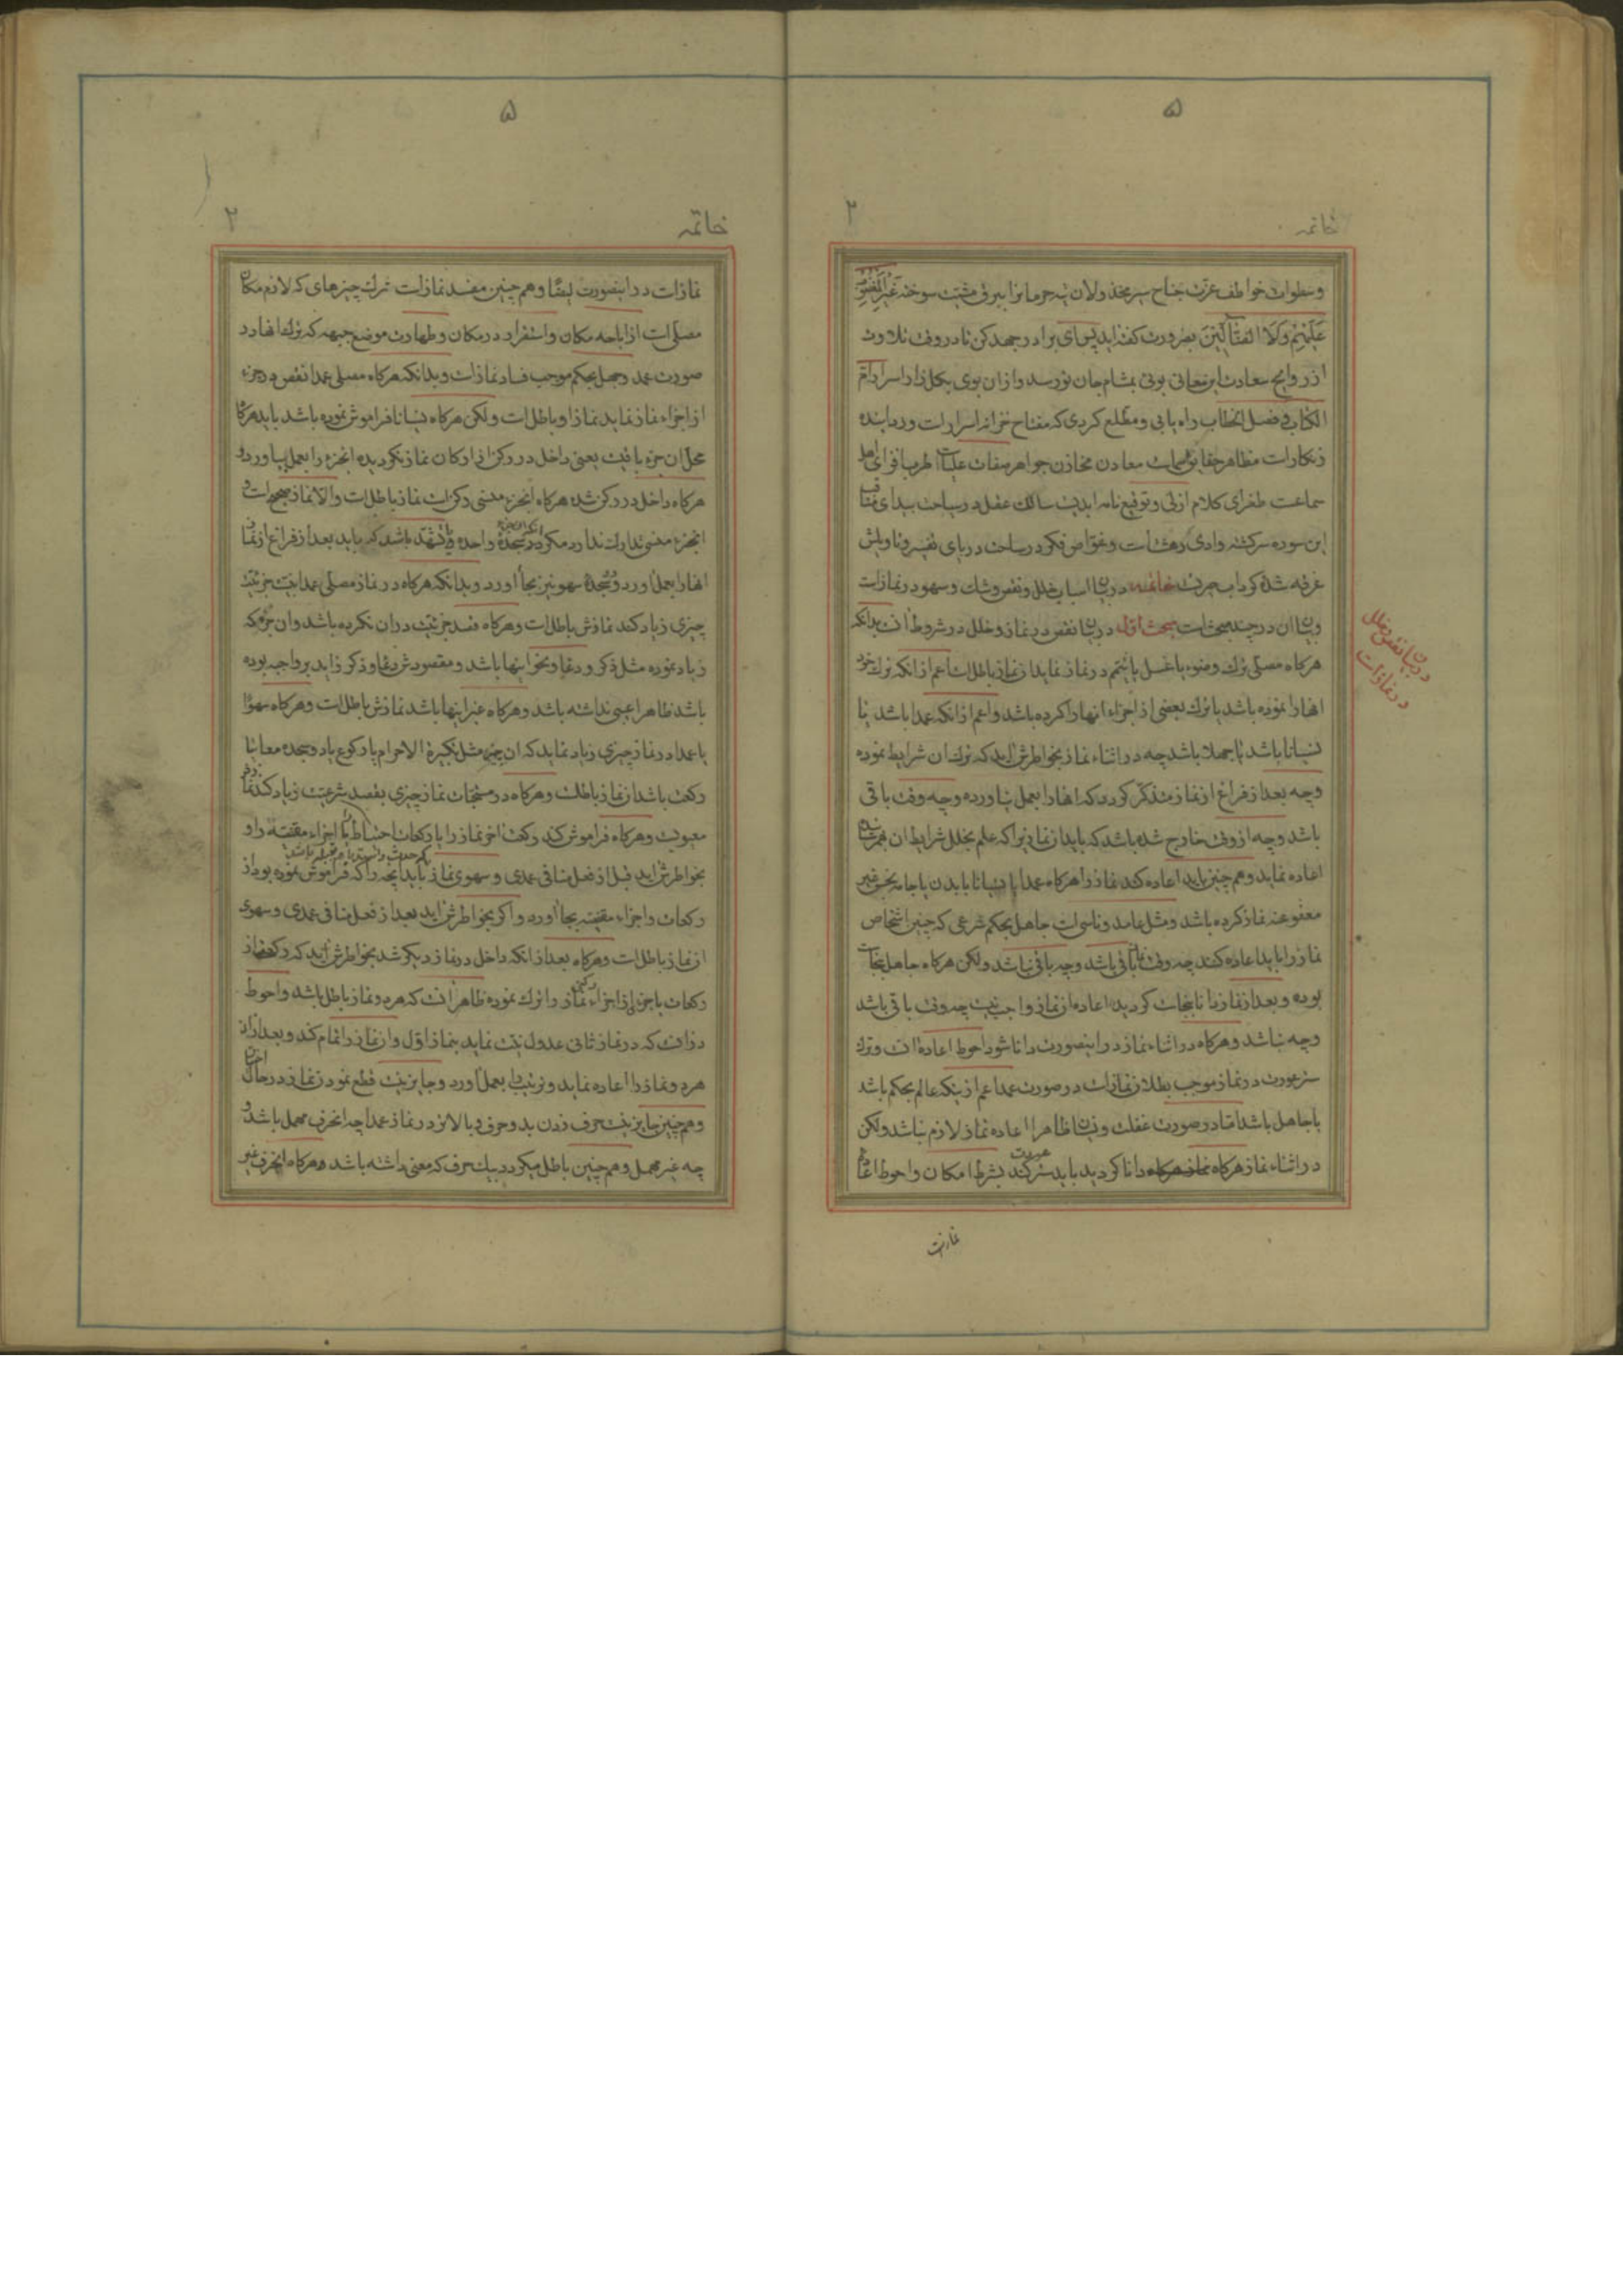 ۵
خاتمه
وسطوات خواطف عزت جناح سیر مخذولان تیه حرمانرا ببرق مشیت سوخته غیر المغضوب
علیهم ولا الضالین بضرورت گفته اید پس ای برادر جهد کن تا در وقت تلاوت
از روایح سعادت این معانی بوئی بمشام جان تو رسد و از ان بوی بکلزار اسرار ام
الکتاب و فصل الخطاب راه یابی و مطلع کردی که مفتاح خزانه اسرار است و رداینده
زنکار است مظاهر حقایق سمات معادن مخازن جواهر صفات علیات
سماعت طغرای کلام ازلی و توقیع نامه ابدیت سالک عقل در سیاحت بیدای
این سوره سرکشته وادی دهشت است و غواص فکر در ساحت دریای تفسیر و تاویلش
غرقه شده کرداب حیرت خاتمه در بیان اسباب خلل و نقص و شک و سهو در نماز است
و بیان ان در چند مبحث است مبحث اول در بیان نقص در نماز و خلل در شروط آنست بدانکه
هرکاه مصلی ترک وضوء یا غسل یا تیمم در نماز نماید ان نماز باطل است اعم از انکه ترک خود
انها را نموده باشد یا ترک بعضی از اجزاء انها را کرده باشد و اعم از انکه عمدا باشد یا
نسیانا باشد یا جهلا باشد چه در اثناء نماز بخواطرش اید که ترک ان شرایط نموده
وچه بعد از فراغ از نماز متذکر کردد که انها را بعمل نیاورده وچه وقت باقی
باشد وچه از وقت خارج شده باشد که باید ان نماز زیرا که علم بخلل شرایط ان بهمرسانده
اعاده نماید وهم چنین باید اعاده کند نماز را هرکاه عمدا یا نسیانا با بدن یا جامه نجس غیر
معفو عنه نماز کرده باشد ومثل عامد وناسی است جاهل بحکم شرعی که چنین اشخاص
نماز را باید اعاده کنند چه وقت نماز باقی باشد وچه باقی نباشد ولکن هرکاه جاهل بنجاست
بوده و بعد از نماز دانا بنجاست کردید اعاده ان نماز واجب نیست چه وقت باقی باشد
وچه نباشد وهرکاه در اثناء نماز در اینصورت دانا شود احوط اعاده است وترک
ستر عورت در نماز موجب بطلان نماز است در صورت عمد اعم از اینکه عالم بحکم باشد
یا جاهل باشد اما در صورت غفلت و نسیان ظاهرا اعاده نماز لازم نباشد ولکن
در اثناء نماز هرکاه نماز هرکاه دانا کردید باید ستر عورت کند بشرط امکان واحوط اعاده
نماز است
در بیان نقص و خلل
در نماز است
۵
خاتمه ۲
نماز است در اینصورت ایضا وهم چنین مفسد نماز است ترک چیزهای که لازم مکان
مصلی است از اباحه مکان واستقرار در مکان وطهارت موضع جبهه که ترک انها در
صورت عمد وجهل بحکم موجب فساد نماز است وبدانکه هرکاه مصلی عمدا نقص در جزء
از اجزاء نماز نماید نماز او باطل است ولکن هرکاه نسیانا فراموش نموده باشد باید هرکاه
محل ان جزء باقیست یعنی داخل در رکن از ارکان نماز نکردیده انجزء را بعمل بیاورد و
هرکاه داخل در رکن شده هرکاه انجزء منسی رکن است نماز باطل است والا نماز صحیح است و
انجزء منسی تدارک ندارد مکر در سجده واحده و تشهد باشد که باید بعد از فراغ از نماز
انها را بعمل اورد و دو سجده سهو نیز بجا اورد وبدانکه هرکاه در نماز مصلی عمدا بنیت جزئیت
چیزی زیاد کند نمازش باطل است وهرکاه قصد جزئیت در ان نکرده باشد وان جزئی که
زیاد نموده مثل ذکر و دعا ونحو اینها باشد ومقصودش دعا وذکر زاید بر واجب بوده
باشد ظاهرا عیبی نداشته باشد وهرکاه غیر اینها باشد نمازش باطل است وهرکاه سهوا
یا عمدا در نماز چیزی زیاد نماید که ان چیز مثل تکبیرة الاحرام یا رکوع یا دو سجده معا یا
رکعت باشد ان نماز باطلست وهرکاه در مستحبات نماز چیزی بقصد شرعیت زیاد کند نماز
معیوبست وهرکاه فراموش کند رکعت اخر نماز را یا رکعات احتیاط یا اجزاء مقضیة را و
بخواطرش اید قبل از فعل منافی عمدی و سهوی نماز باید انچه را که فراموش نموده بود از
رکعات واجزاء مقضیه بجا اورد واکر بخواطرش اید بعد از فعل منافی عمدی وسهوی
ان نماز باطل است وهرکاه بعد از انکه داخل در نماز دیکر شد بخواطرش اید که رکعتی از
رکعات یا جزء از اجزاء رکنی نماز را ترک نموده ظاهر انست که هر دو نماز باطل باشد واحوط
در انست که در نماز ثانی عدول نیت نماید بنماز اول وان نماز را اتمام کند وبعد از ان
هر دو نماز را اعاده نماید وترتیب را بعمل اورد وجایز نیست قطع نمودن نماز در حال اختیار
وهم چنین جایز نیست حرف زدن بدو حرف و بالاتر در نماز عمدا چه انحرف مهمل باشد و
چه غیر مهمل وهم چنین باطل میکردد بیک حرف که معنی داشته باشد وهرکاه انحرف غیر